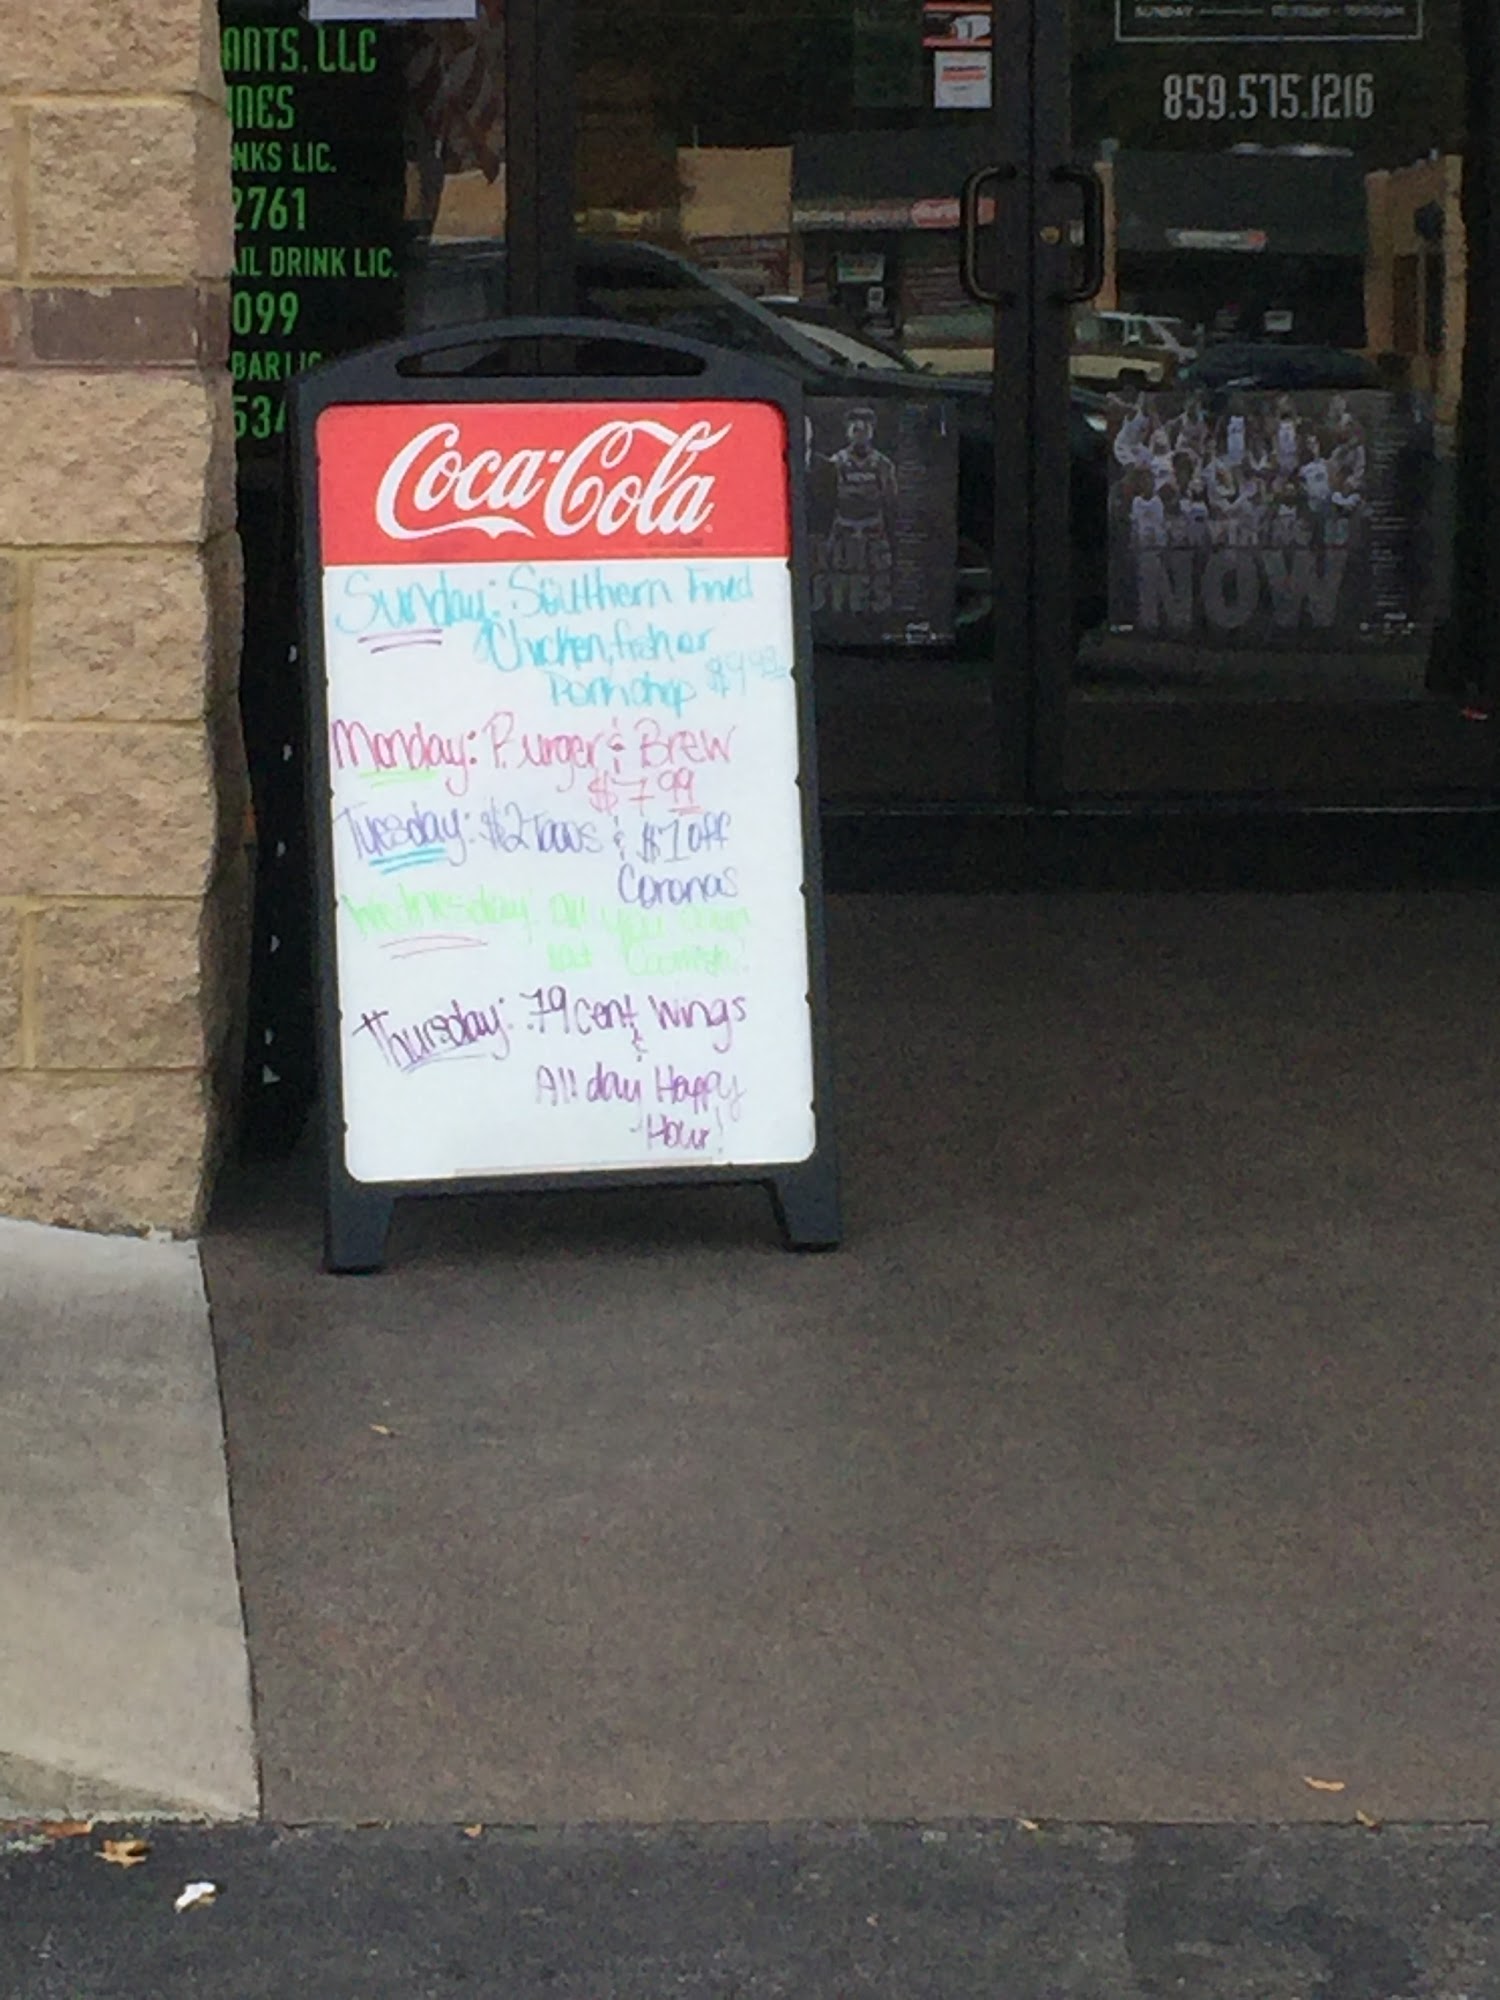 ANTS, LLC
INES
NKS LIC.
2761
AIL DRINK LIC.
099
BAR LIC
534
SUNDAY
859.575.1216
Coca-Cola
Sunday: Southern Fried
Chicken, fish or
Porkchop $9.99
Monday: Burger & Brew
$7.99
Tuesday: $2 Tacos & $1 off
Coronas
Wednesday: All you can
eat
Thursday: .79 cent Wings
&
All day Happy
Hour!
EVERYTHING IS
NOW